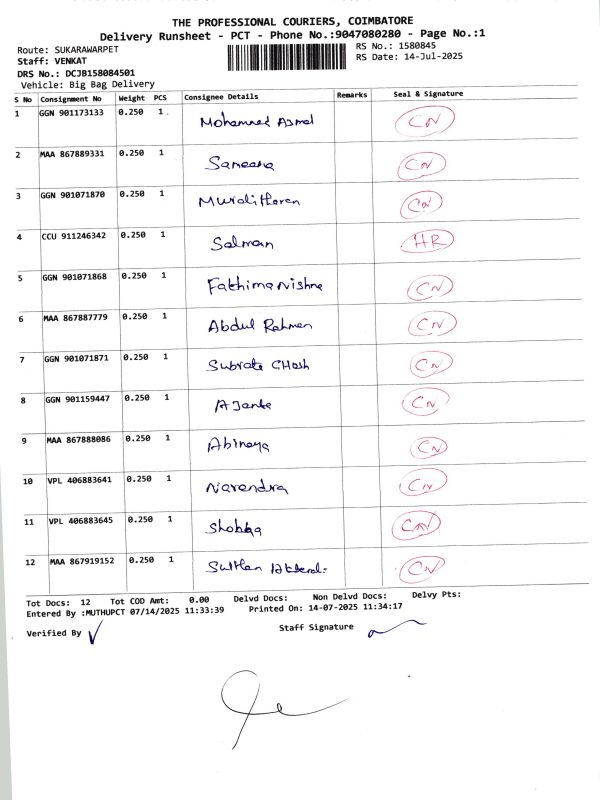 THE PROFESSIONAL COURIERS, COIMBATORE
Delivery Runsheet - PCT - Phone No.:9047080280 - Page No.:1
Route: SUKARAWARPET RS No.: 1580845
Staff: VENKAT RS Date: 14-Jul-2025
DRS No.: DCJB158084501
Vehicle: Big Bag Delivery
S No Consignment No Weight PCS Consignee Details Remarks Seal & Signature
1 GGN 901173133 0.250 1 Mohammed Asmal CN
2 MAA 867889331 0.250 1 Sameena CN
3 GGN 901071870 0.250 1 Muralitharen CN
4 CCU 911246342 0.250 1 Salman HR
5 GGN 901071868 0.250 1 Fathima Nishna CN
6 MAA 867887779 0.250 1 Abdul Rahman CN
7 GGN 901071871 0.250 1 Subrata GHosh CN
8 GGN 901159447 0.250 1 AJanta CN
9 MAA 867888086 0.250 1 Abinaya CN
10 VPL 406883641 0.250 1 Narendra CN
11 VPL 406883645 0.250 1 Shobha CN
12 MAA 867919152 0.250 1 Sulthan CN
Tot Docs: 12 Tot COD Amt: 0.00 Delvd Docs: Non Delvd Docs: Delvy Pts:
Entered By :MUTHUPCT 07/14/2025 11:33:39 Printed On: 14-07-2025 11:34:17
Verified By Staff Signature